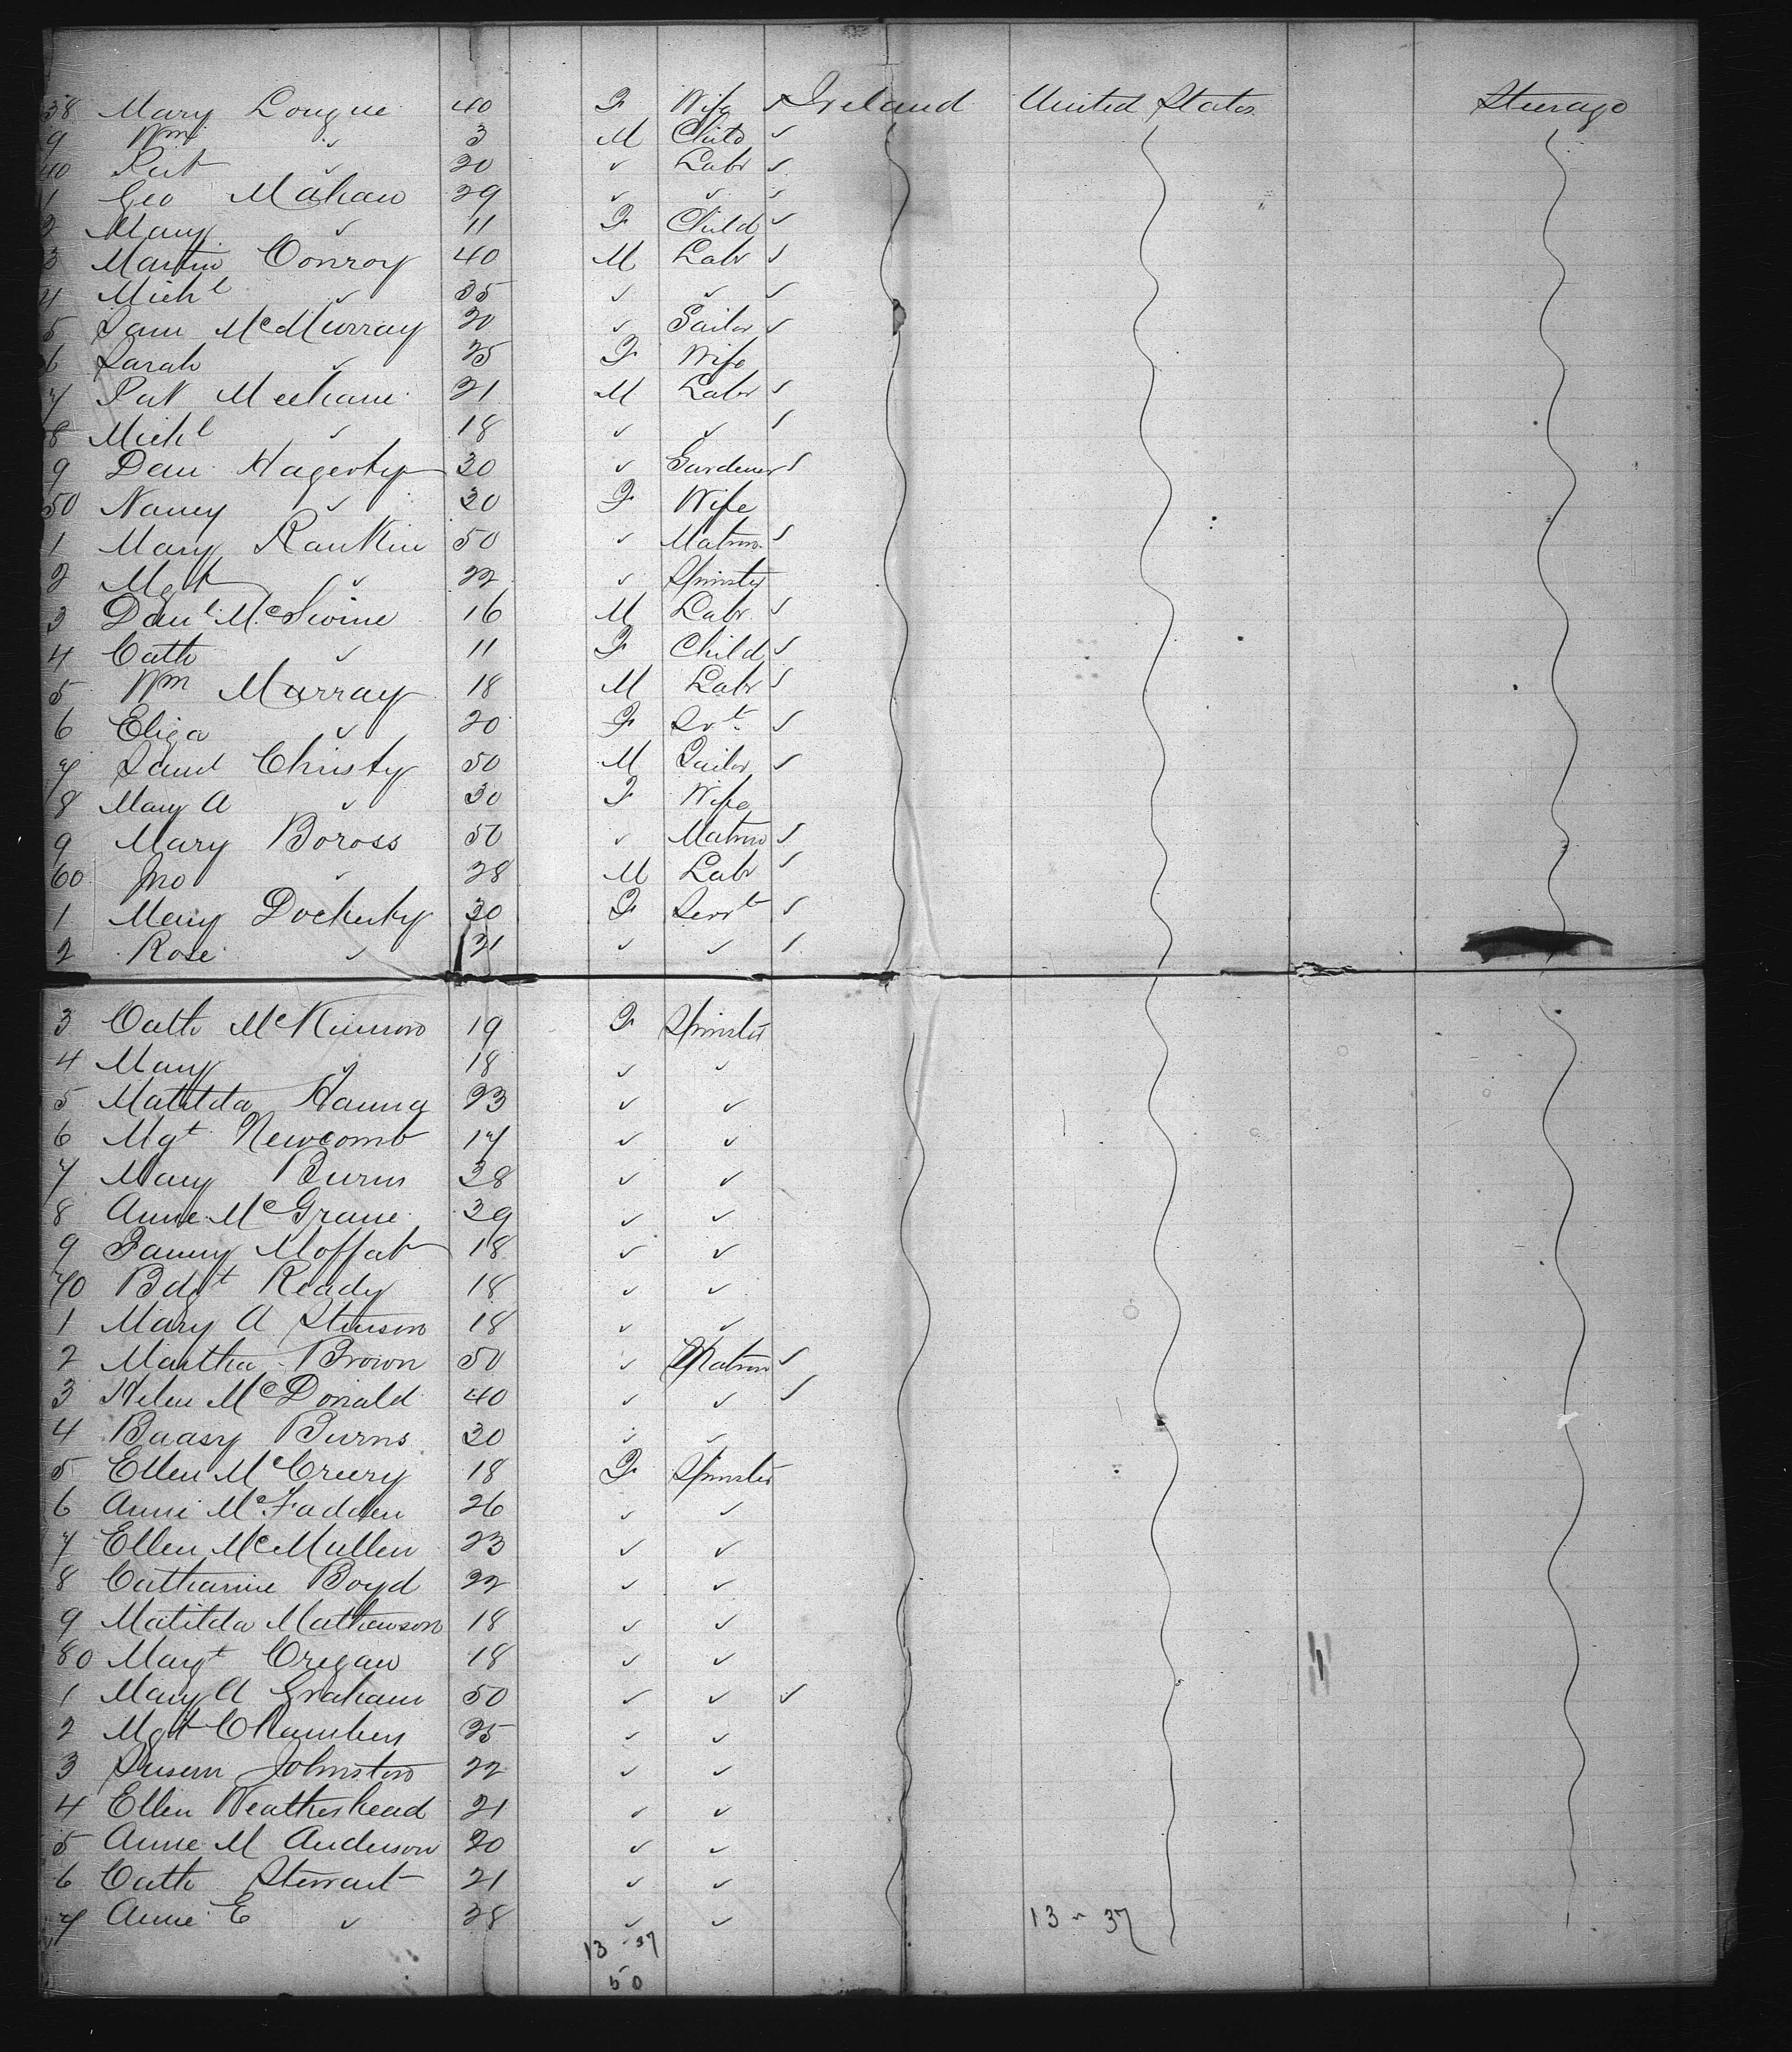 38 Mary Longue 40 F Wife ✓ Ireland United States Steerage
9 Wm ✓ 3 M Child ✓
40 Pat ✓ 20 ✓ Labr ✓
1 Geo Mahan 29 ✓ ✓ ✓
2 Mary ✓ 11 F Child ✓
3 Martin Conroy 40 M Labr ✓
4 Michl ✓ 35 ✓ ✓ ✓
5 Sam McMurray 20 ✓ Sailor ✓
6 Sarah ✓ 25 F Wife
7 Pat Meehane 21 M Labr ✓
8 Michl ✓ 18 ✓ ✓ ✓
9 Dan Hagerty 30 ✓ Gardener ✓
50 Nancy ✓ 30 F Wife
1 Mary Rankin 50 ✓ Matron ✓
2 Mgt ✓ 22 ✓ Spinster
3 Danl McSwine 16 M Labr ✓
4 Cath ✓ 11 F Child ✓
5 Wm Murray 18 M Labr ✓
6 Eliza ✓ 20 F Svt ✓
7 Saml Christy 50 M Tailor ✓
8 Mary A ✓ 30 F Wife
9 Mary Boross 50 ✓ Matron ✓
60 Jno ✓ 28 M Labr ✓
1 Mary Docherty 30 F Servt ✓
2 Rose ✓ 21 ✓ ✓ ✓
3 Cath McKinnon 19 F Spinster
4 Mary ✓ 18 ✓ ✓
5 Matilda Hanna 23 ✓ ✓
6 Mgt Newcomb 17 ✓ ✓
7 Mary Burns 38 ✓ ✓
8 Anne McGrane 39 ✓ ✓
9 Fanny Moffat 18 ✓ ✓
70 Bdgt Ready 18 ✓ ✓
1 Mary A Stinson 18 ✓ ✓
2 Martha Brown 50 ✓ Matron ✓
3 Helen McDonald 40 ✓ ✓ ✓
4 Burns 30 ✓ ✓
5 Ellen McCreery 18 F Spinster
6 Anne McFadden 26 ✓ ✓
7 Ellen McMullen 23 ✓ ✓
8 Catharine Boyd 22 ✓ ✓
9 Matilda Mathewson 18 ✓ ✓
80 Margt Cregan 18 ✓ ✓
1 Mary A Graham 50 ✓ ✓ ✓
2 Mgt Chambers 25 ✓ ✓
3 Susan Johnston 22 ✓ ✓
4 Ellen Weatherhead 21 ✓ ✓
5 Anne M Anderson 20 ✓ ✓
6 Cath Stewart 21 ✓ ✓
7 Anne E ✓ 28 ✓ ✓ 13 - 37
13 - 37
50